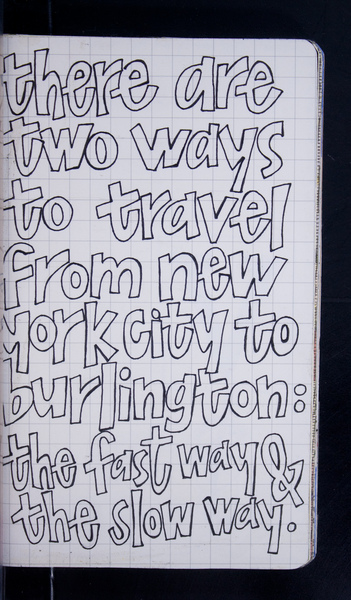 there are
two ways
to travel
from new
york city to
burlington:
the fast way &
the slow way.